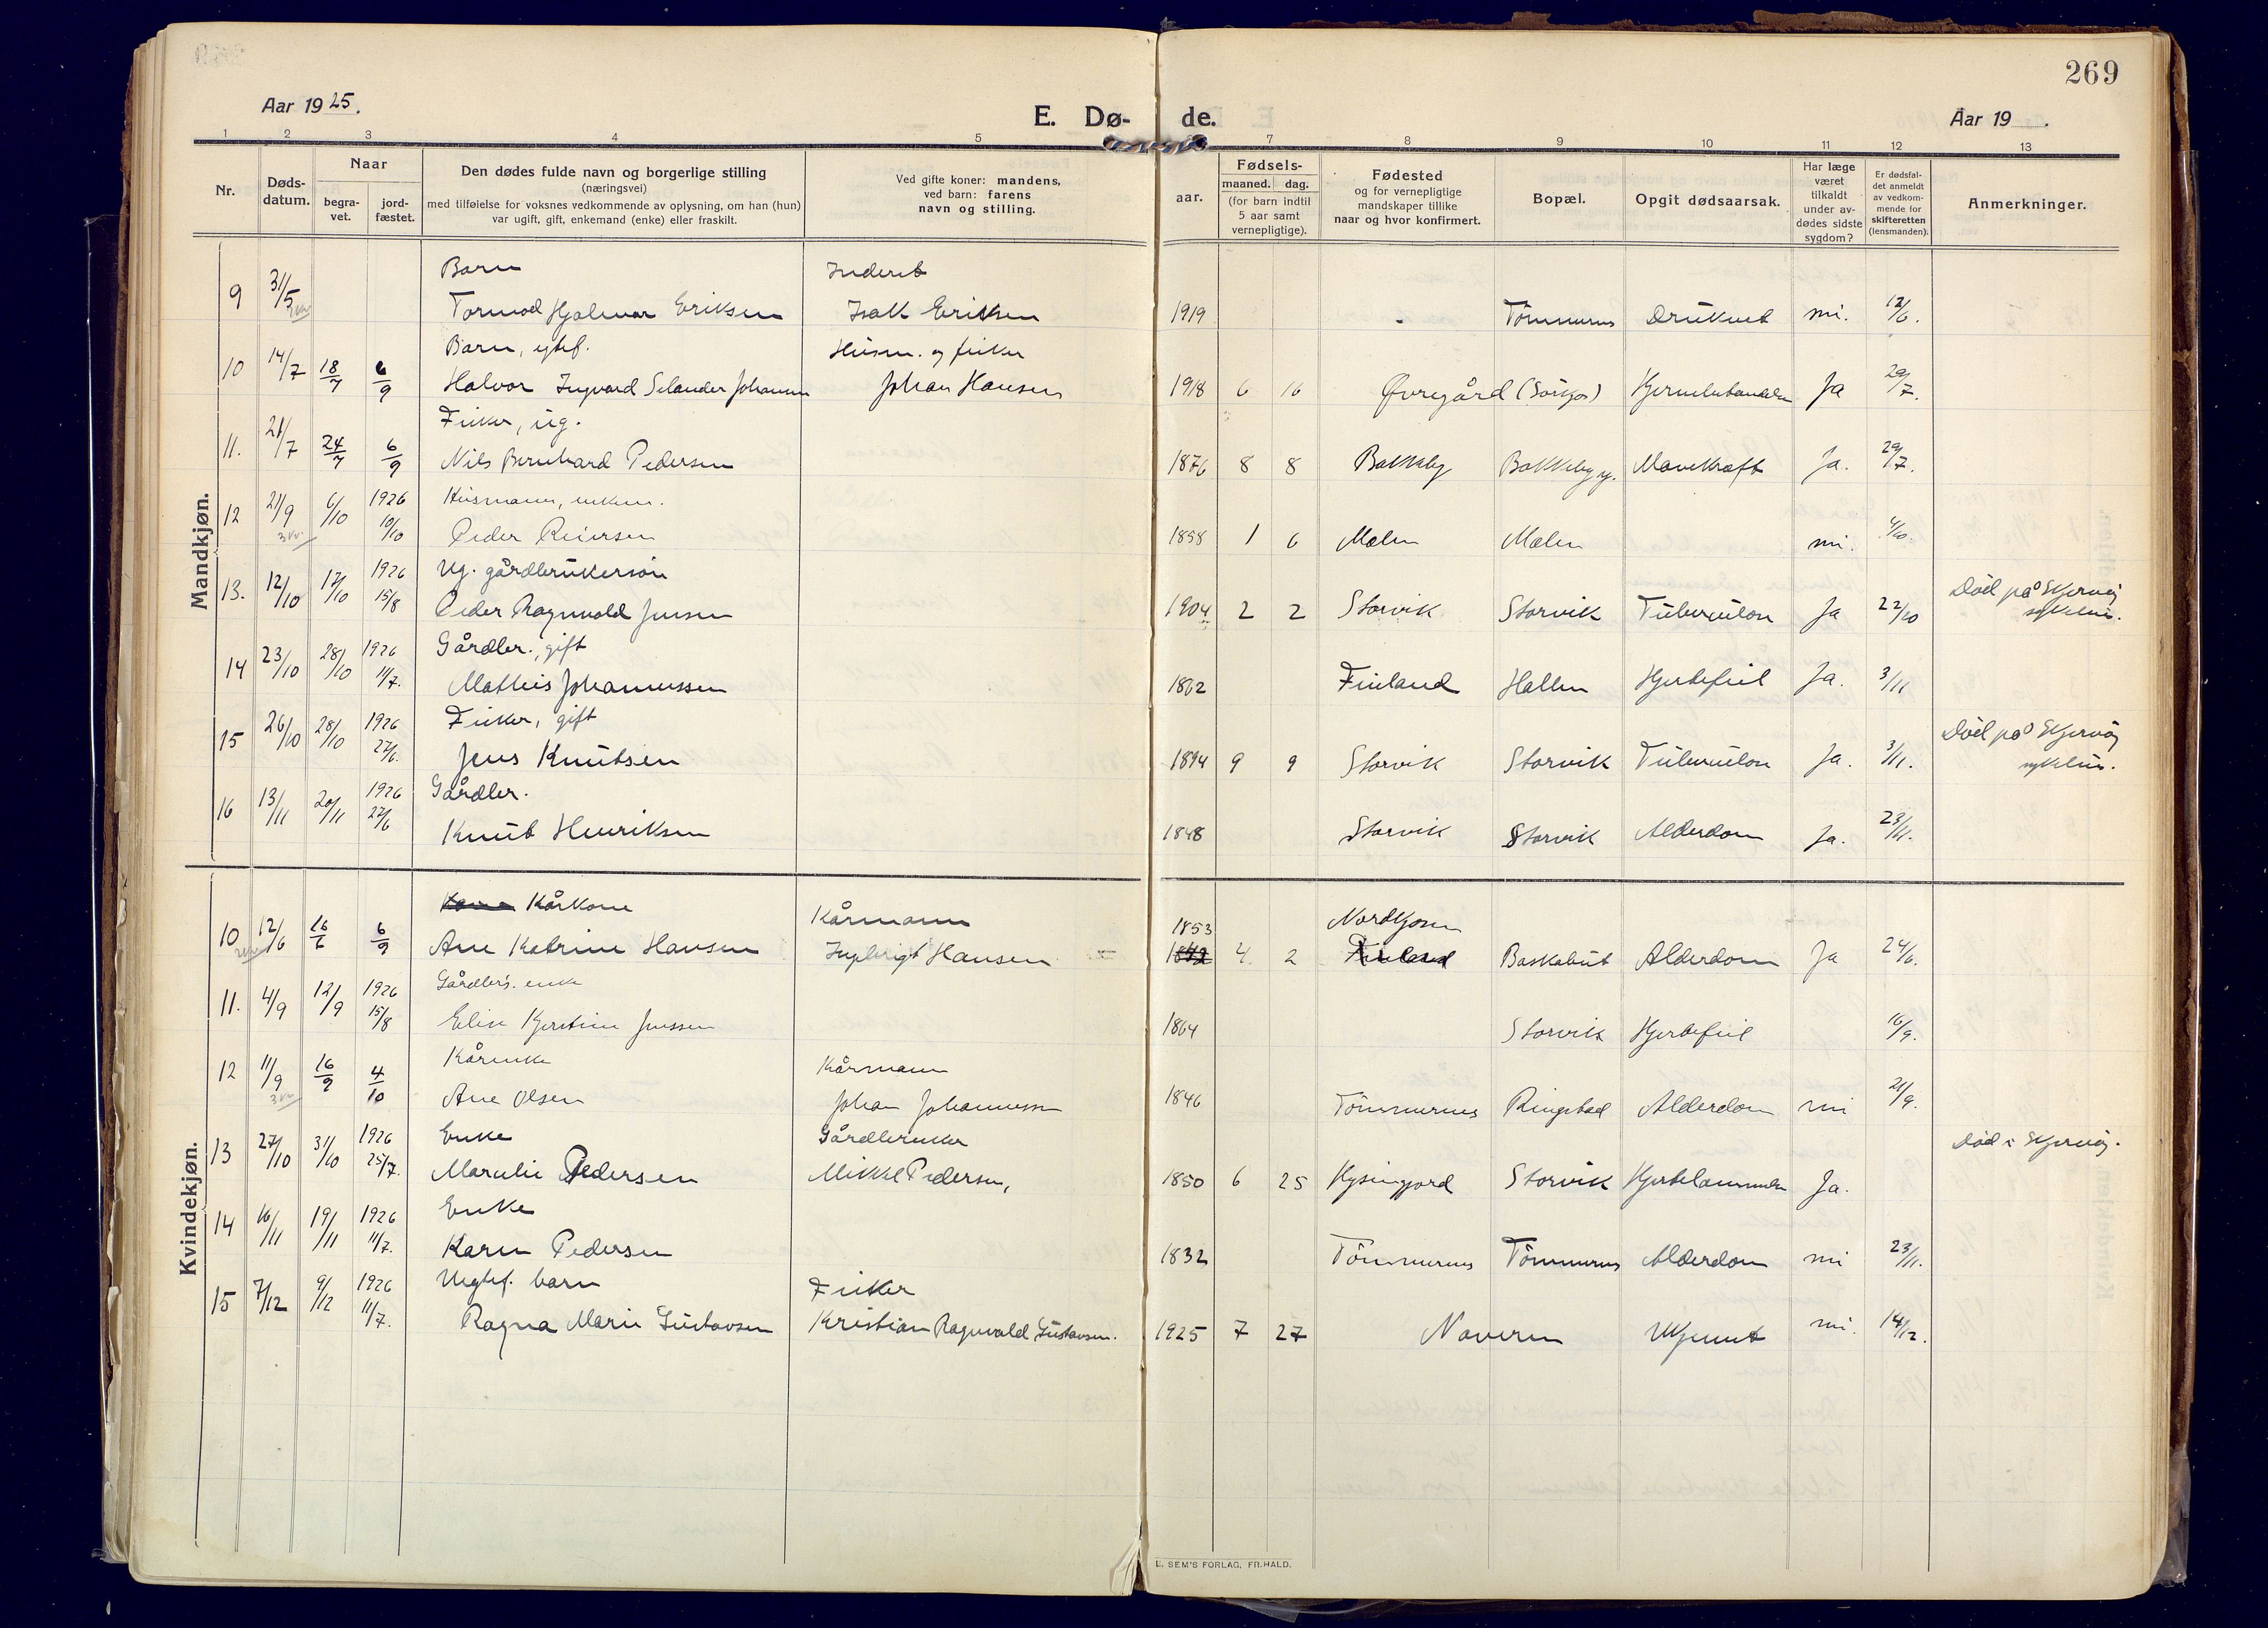 269
Aar 1925.
E. Dø-de.
Aar 19
1 2 3 4 5 7 8 9 10 11 12 13
Nr.
Døds-datum.
Naar
begra-vet.
jord-fæstet.
Den dødes fulde navn og borgerlige stilling
(næringsvei)
med tilføielse for voksnes vedkommende av oplysning, om han (hun)
var ugift, gift, enkemand (enke) eller fraskilt.
Ved gifte koner: mandens,
ved barn: farens
navn og stilling.
Fødsels-
aar.
maaned. dag.
(for barn indtil
5 aar samt
vernepligtige).
Fødested
og for vernepligtige
mandskaper tillike
naar og hvor konfirmert.
Bopæl.
Opgit dødsaarsak.
Har læge
været
tilkaldt
under av-
dødes sidste
sygdom?
Er dødsfal-
det anmeldt
av vedkom-
mende for
skifteretten
(lensmanden).
Anmerkninger.
Mandkjøn.
Barn
9 31/5 Tormod Hjalmar Eriksen Isak Eriksen 1919 Druknet 12/6.
Barn, egtef.
10 14/7 18/7 6/9 Halvor Ingvard Selander Johansen Johan Hansen 1918 6 16 Øvregård Ja 29/7.
Fisker, ug.
11. 21/7 24/7 6/9 Nils Bernhard Pedersen 1876 8 8 Bakkeby Bakkeby Mavekræft Ja. 29/7.
12 21/9 6/10 1926 10/10 Husmann, enkem.
Peder Reiersen 1858 1 6 Mælen Mælen
13. 12/10 17/10 1926 15/8 Ug. gårdbrukersøn
Peder Ragnvald Jensen 1904 2 2 Storvik Storvik Tuberculose Ja 22/10 Død på Skjervøy sykehus.
14 23/10 28/10 1926 11/7. Gårdbr., gift
Mathis Johannessen 1862 Finland Hallen Hjertefeil Ja. 3/11
15 26/10 28/10 1926 27/6. Fisker, gift
Jens Knutsen 1894 9 9 Storvik Storvik Tuberculose Ja. 3/11. Død på Skjervøy sykehus.
16 13/11 20/11 1926 27/6 Gårdbr.
Knut Henriksen 1848 Storvik Storvik Alderdom Ja. 23/11.
Kvindekjøn.
Kone Kårkone Kårmann 1853 Nordkjosen
10 12/6 16/6 6/9 Ane Katrine Hansen Ingbrigt Hansen 4 2 Finland Baskabut Alderdom Ja 24/6.
11. 4/9 12/9 1926 15/8 Gårdbr's. enke
Elise Kjerstine Jenssen 1864 Storvik Hjertefeil 16/9.
12 11/9 16/9 4/10 Kårenke Kårmann
Ane Olsen Johan Johannessen 1846 Ringstad Alderdom 21/9.
13 27/10 31/10 1926 25/7. Enke Gårdbruker
Marelie Pedersen Mikkel Pedersen, 1850 6 25 Storvik Ja. Død i Skjervøy.
14 16/11 19/11 1926 11/7. Enke
Karen Pedersen 1832 Alderdom 23/11.
15 7/12 9/12 1926 11/7. Uegtef. barn Fisker
Ragna Marie Gustavsen Kristian Ragnvald Gustavsen. 1925 7 27 Naveren Ukjent 14/12.
E. SEM'S FORLAG, FR.HALD.